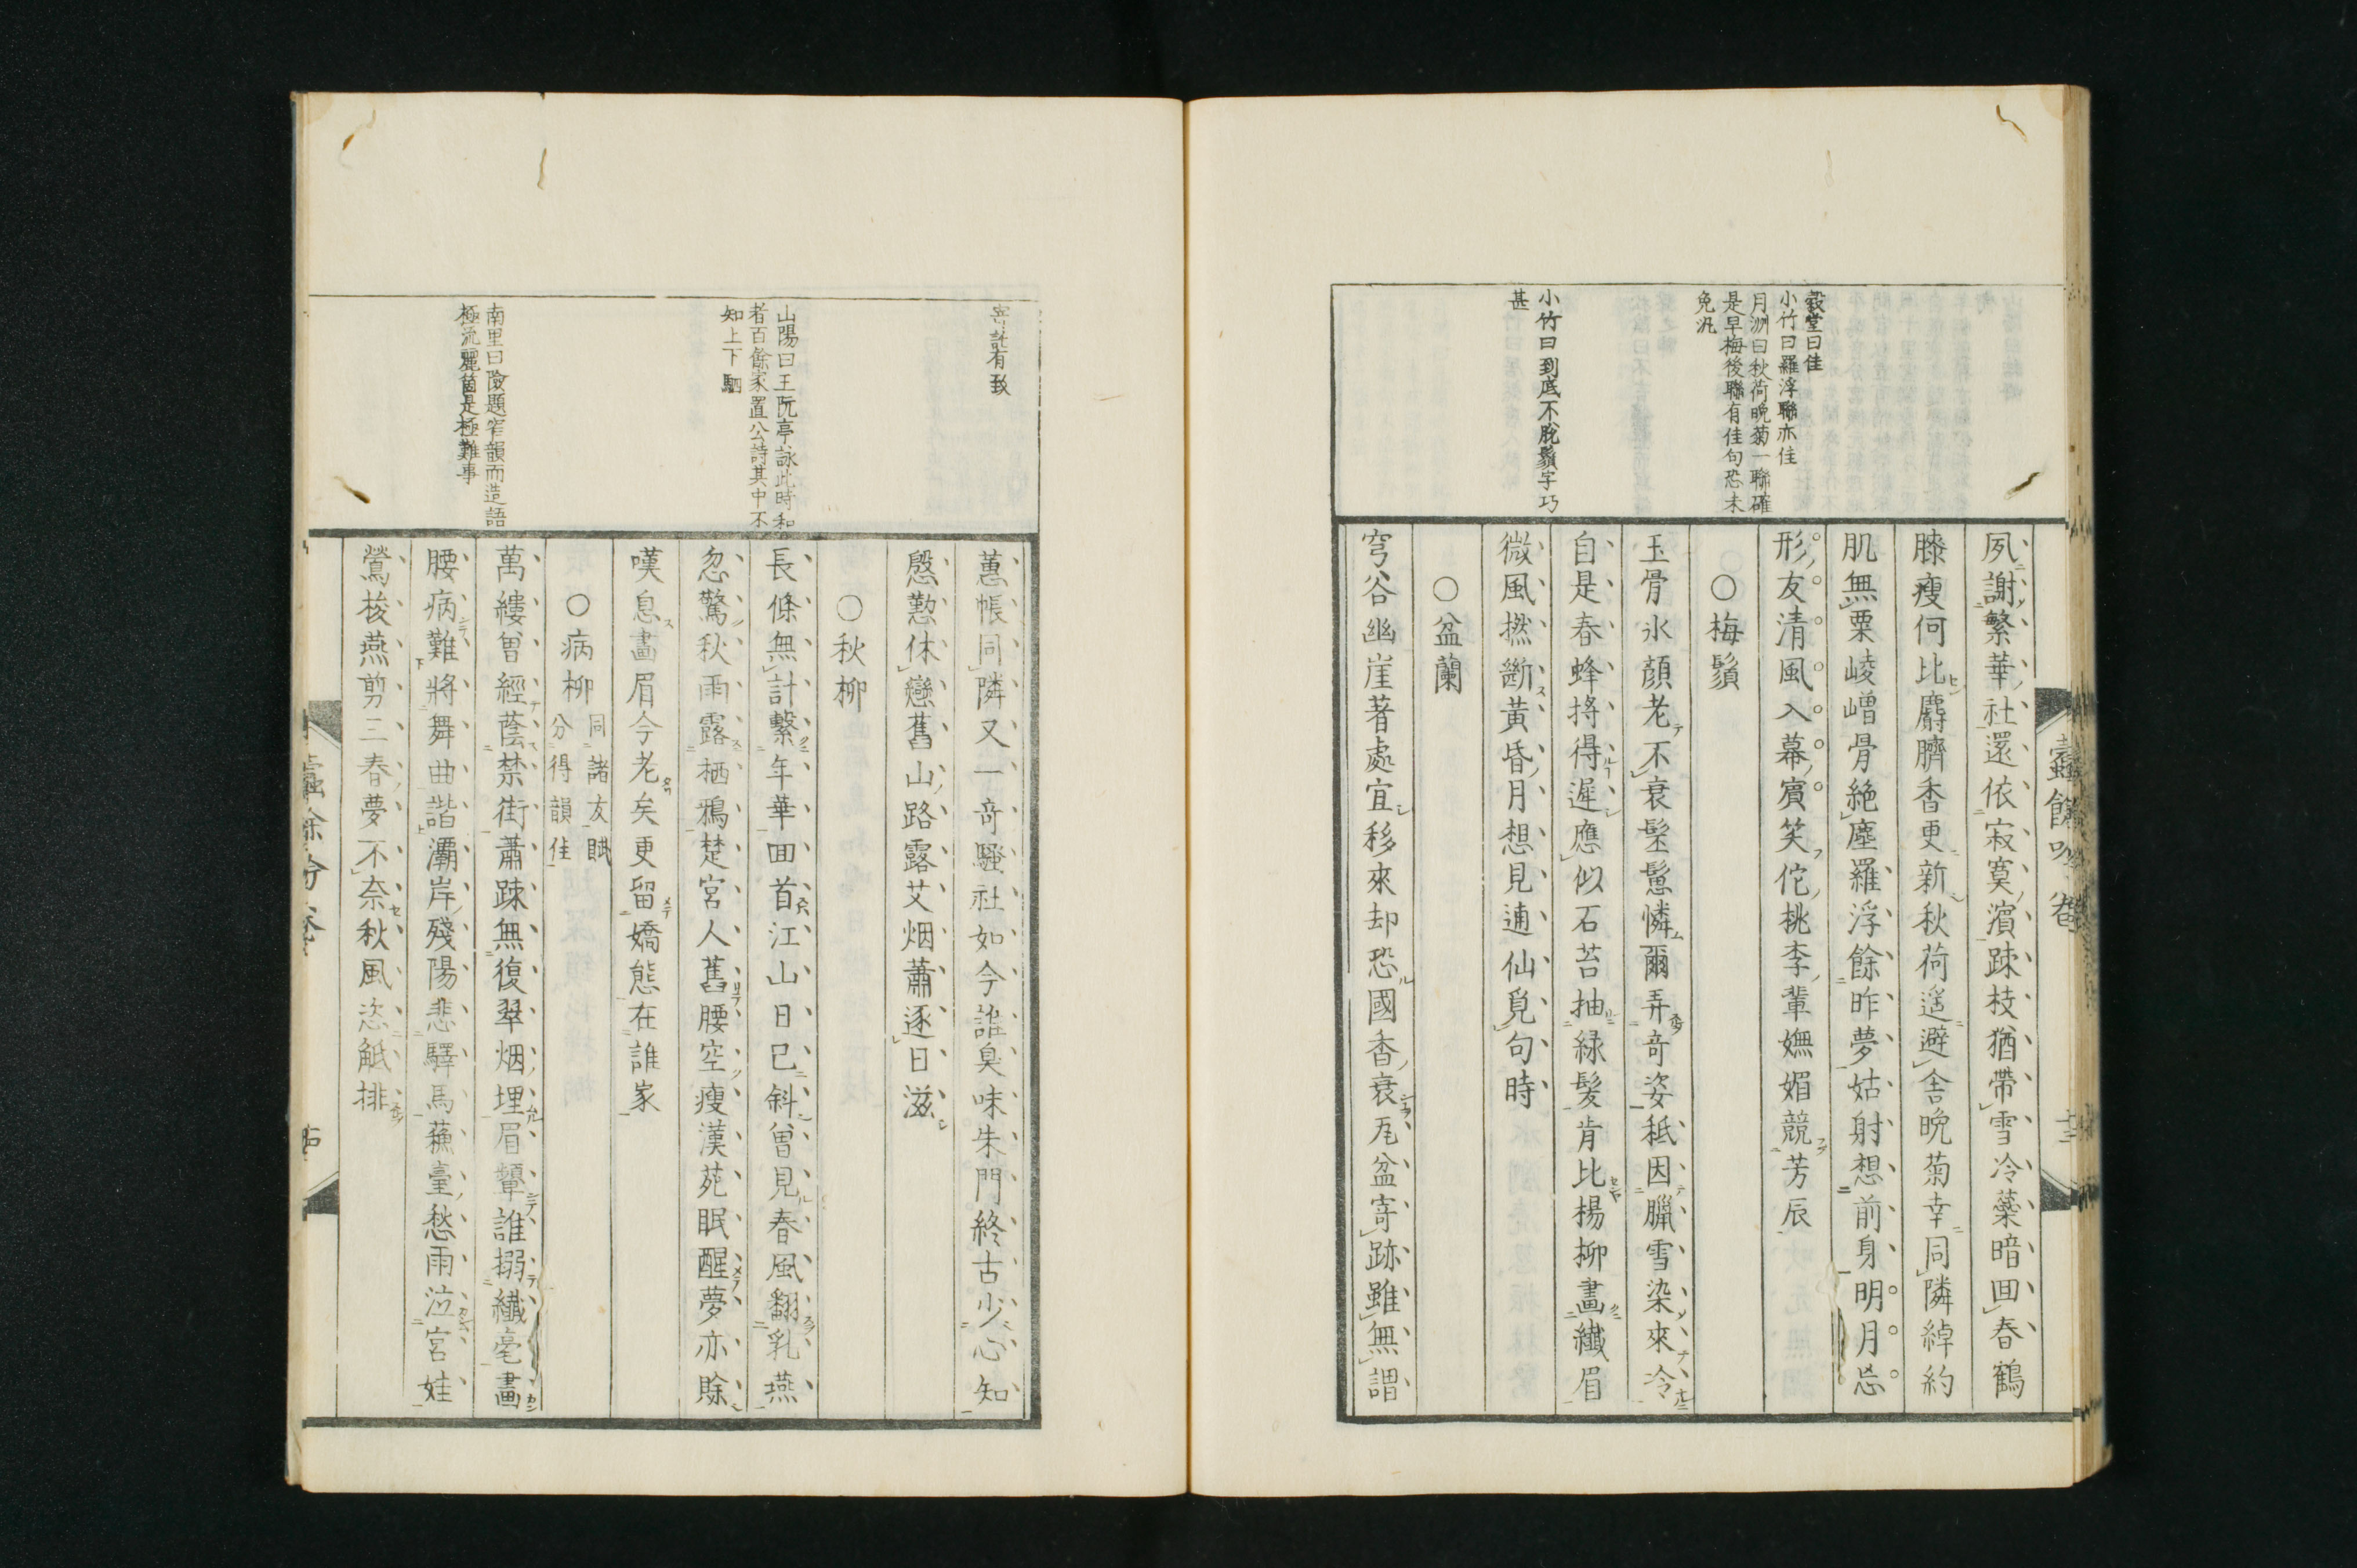 穀堂曰佳
小竹曰羅浮聯亦佳
月洲曰秋荷晚菊一聯確
是早梅後聯有佳句恐未
免汎
小竹曰到底不脫鬚字巧
甚
夙謝繁華社還依寂寞濱踈枝猶帶雪冷蘂暗回春鶴
膝瘦何比麝臍香更新秋荷遥避舍晩菊幸同隣綽約
肌無粟崚嶒骨絶塵羅浮餘昨夢姑射想前身明月忘
形友清風入幕賔笑佗桃李輩嫵媚競芳辰
○梅鬚
玉骨氷顔老不衰髽髱憐爾弄奇姿秪因臘雪染來冷
自是春蜂捋得遲應似石苔抽緑髪肯比楊柳畫纎眉
微風撚斷黄昏月想見逋仙覓句時
○盆蘭
穹谷幽崖著處宜移來却恐國香衰瓦盆寄跡雖無謂
蠧餘吟 卷
十三
寄託有致
山陽曰王阮亭詠此時和
者百餘家置公詩其中不
知上下駟
南里曰險題窄韻而造語
極流麗箇是極難事
蕙帳同隣又一奇騷社如今誰臭味朱門終古少心知
慇懃休戀舊山路露艾烟蕭逐日滋
○秋柳
長條無計繫年華回首江山日已斜曾見春風翻乳燕
忽驚秋雨露栖鴉楚宮人舊腰空瘦漢苑眠醒夢亦賖
嘆息畫眉今老矣更留嬌態在誰家
○病柳 同諸友賦
分得韻佳
萬縷曾經蔭禁街蕭踈無復翠烟埋眉顰誰搦纎毫畫
腰病難將舞曲諧灞岸殘陽悲驛馬蘓臺愁雨泣宮娃
鶯梭燕剪三春夢不奈秋風恣觝排